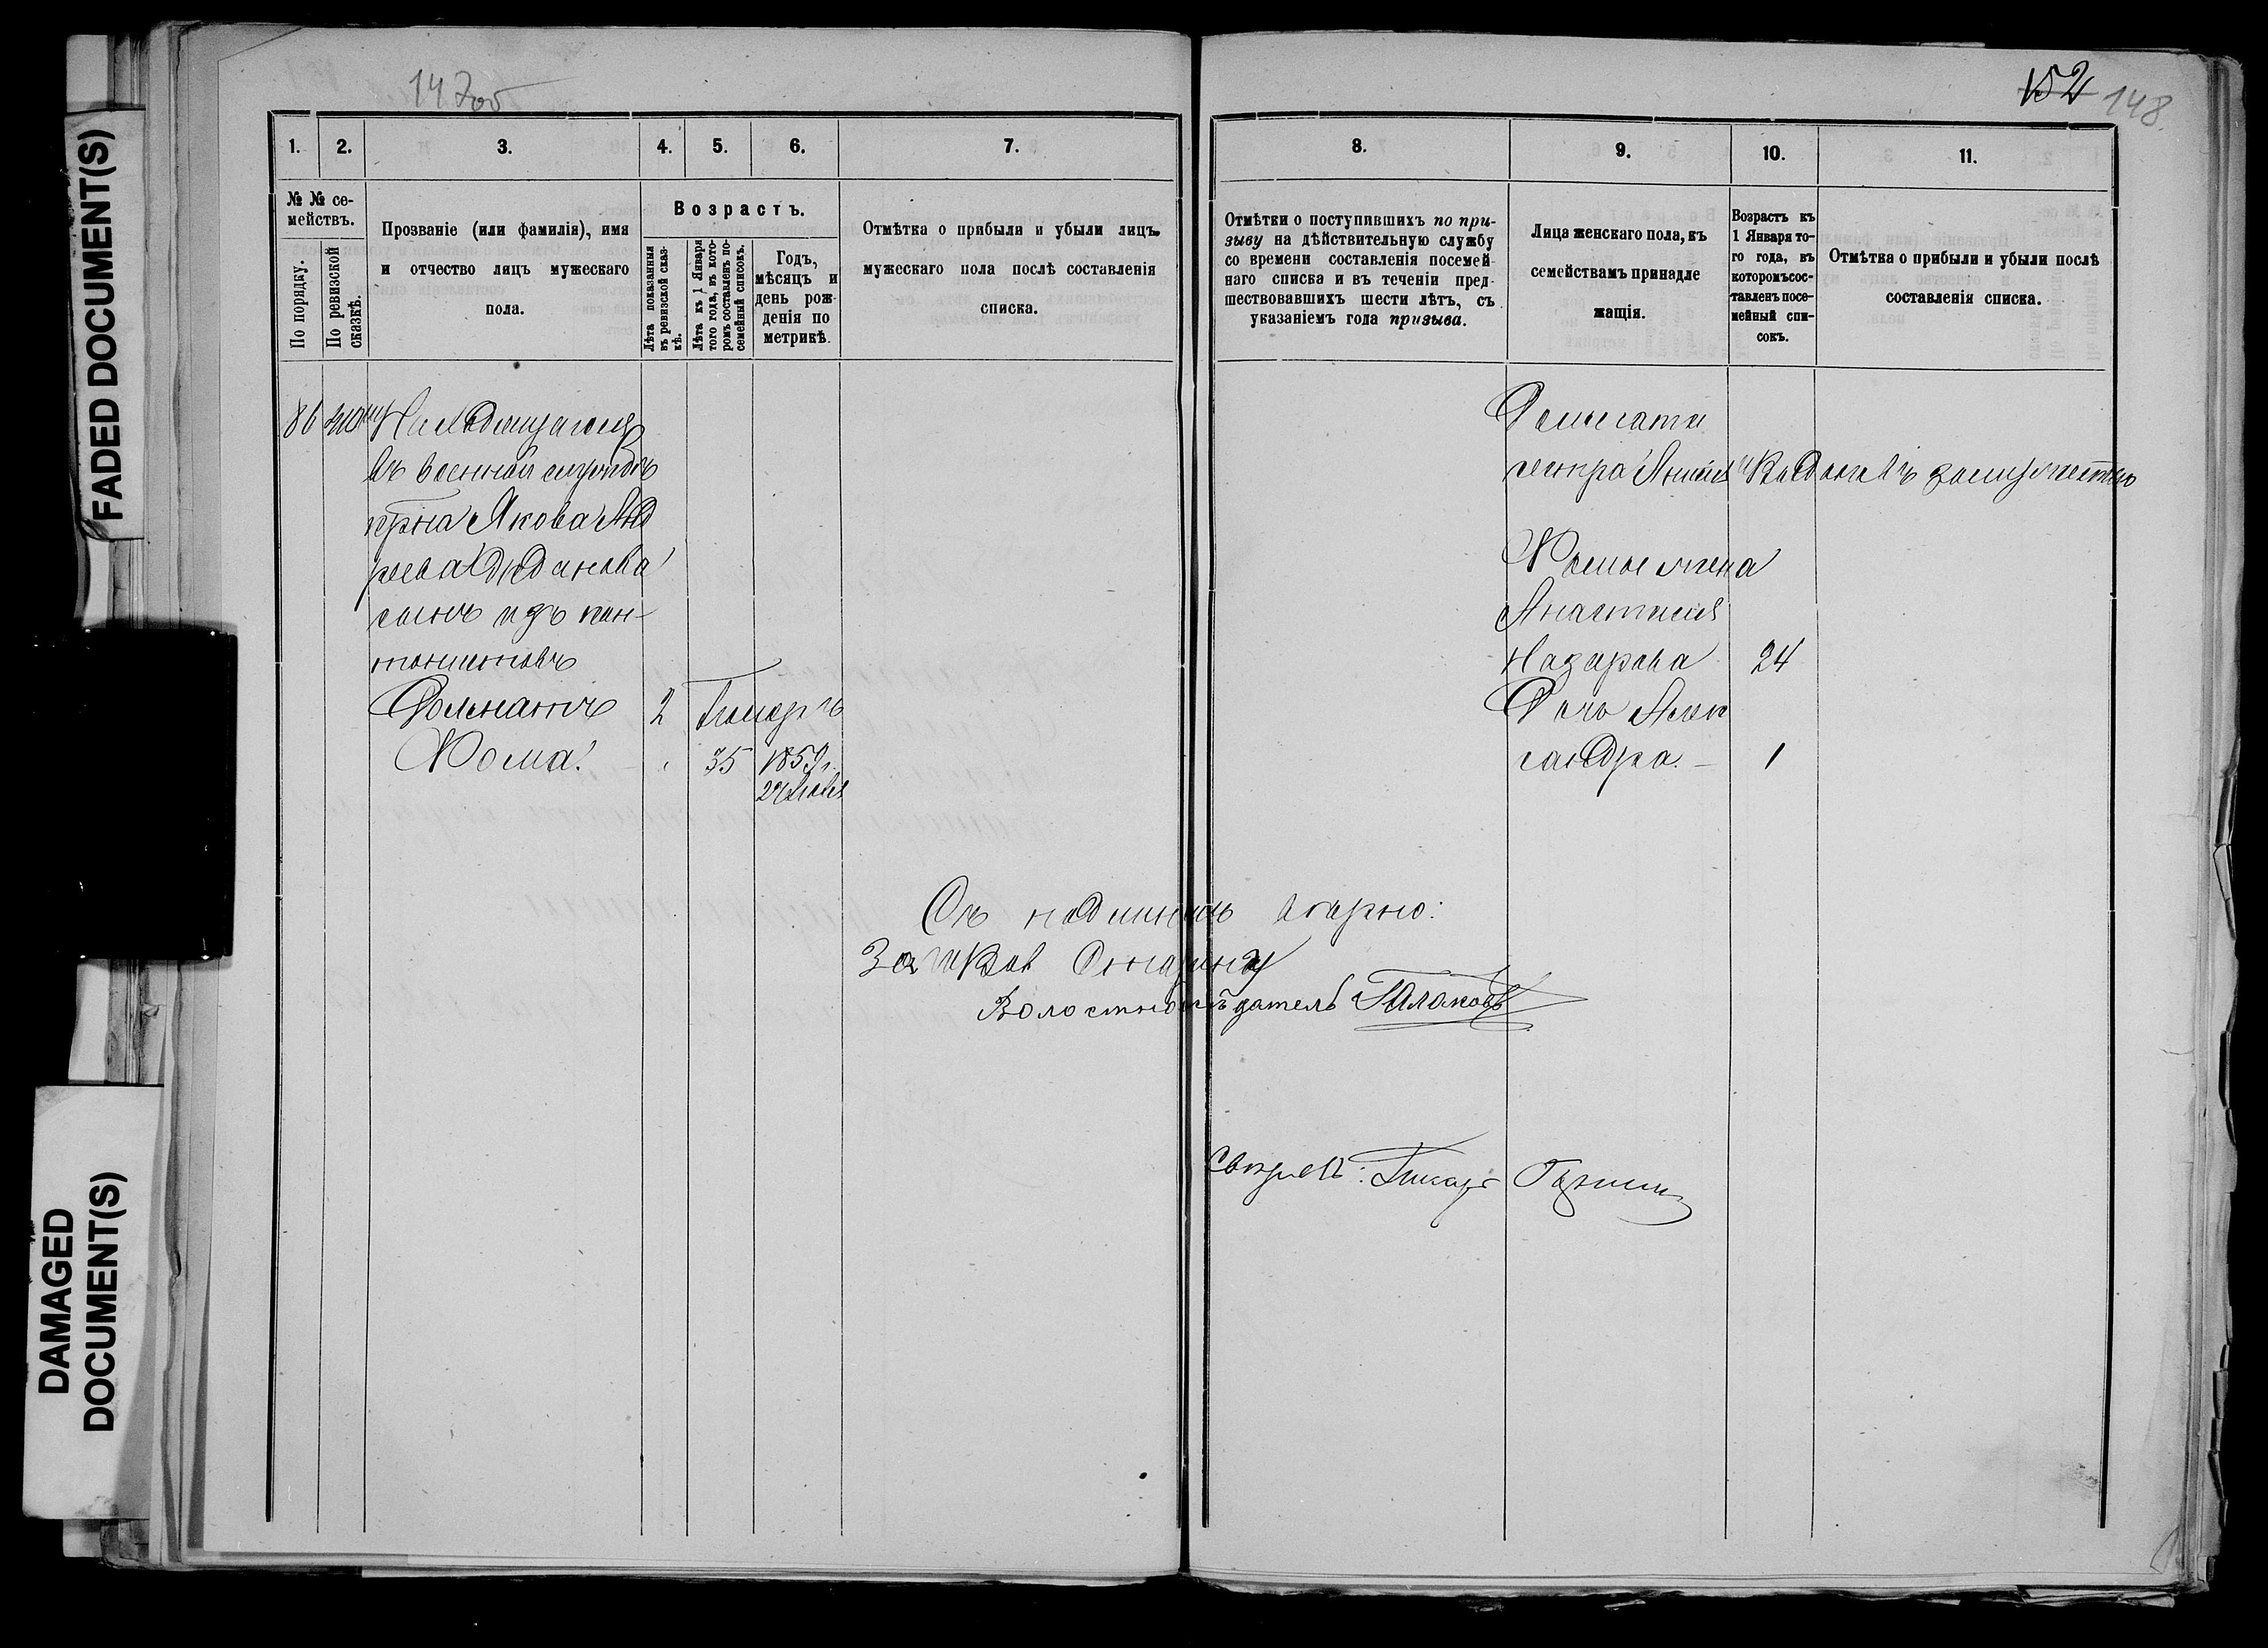 147об
152 148
FADED DOCUMENT(S)
DAMAGED DOCUMENT(S)
1. 2. 3. 4. 5. 6. 7.
№ № се-
мействъ.
По порядку.
По ревизской
сказкѣ.
Прозваніе (или фамилія), имя
и отчество лицъ мужескаго
пола.
Возрастъ.
Лѣта показанныя
въ ревизской сказ-
кѣ.
Лѣта къ 1 Января
того года, въ кото-
ромъ составленъ по-
семейный списокъ.
Годъ,
мѣсяцъ и
день рож-
денія по
метрикѣ.
Отмѣтка о прибыли и убыли лицъ
мужескаго пола послѣ составленія
списка.
86
Находящагося
въ военной службѣ
Якова Анд
реева
сынъ изъ кан-
тонистовъ
2 Померъ
Фома. 35 1859 г.
8. 9. 10. 11.
Отмѣтки о поступившихъ по при-
зыву на дѣйствительную службу
со времени составленія посемей-
наго списка и въ теченіи пред-
шествовавшихъ шести лѣтъ, съ
указаніемъ года призыва.
Лица женскаго пола, къ
семействамъ принадле
жащія.
Возрастъ къ
1 Января то-
го года, въ
которомъ сос-
тавленъ посе-
мейный спи-
сокъ.
Отмѣтка о прибыли и убыли послѣ
составленія списка.
сестра Выдана въ замужество
Фомы жена
Анастасія
Назарова 24
Дочь Алек
сандра. — 1
Съ подлиннымъ вѣрно:
Волостной
Свѣрялъ: Писарь